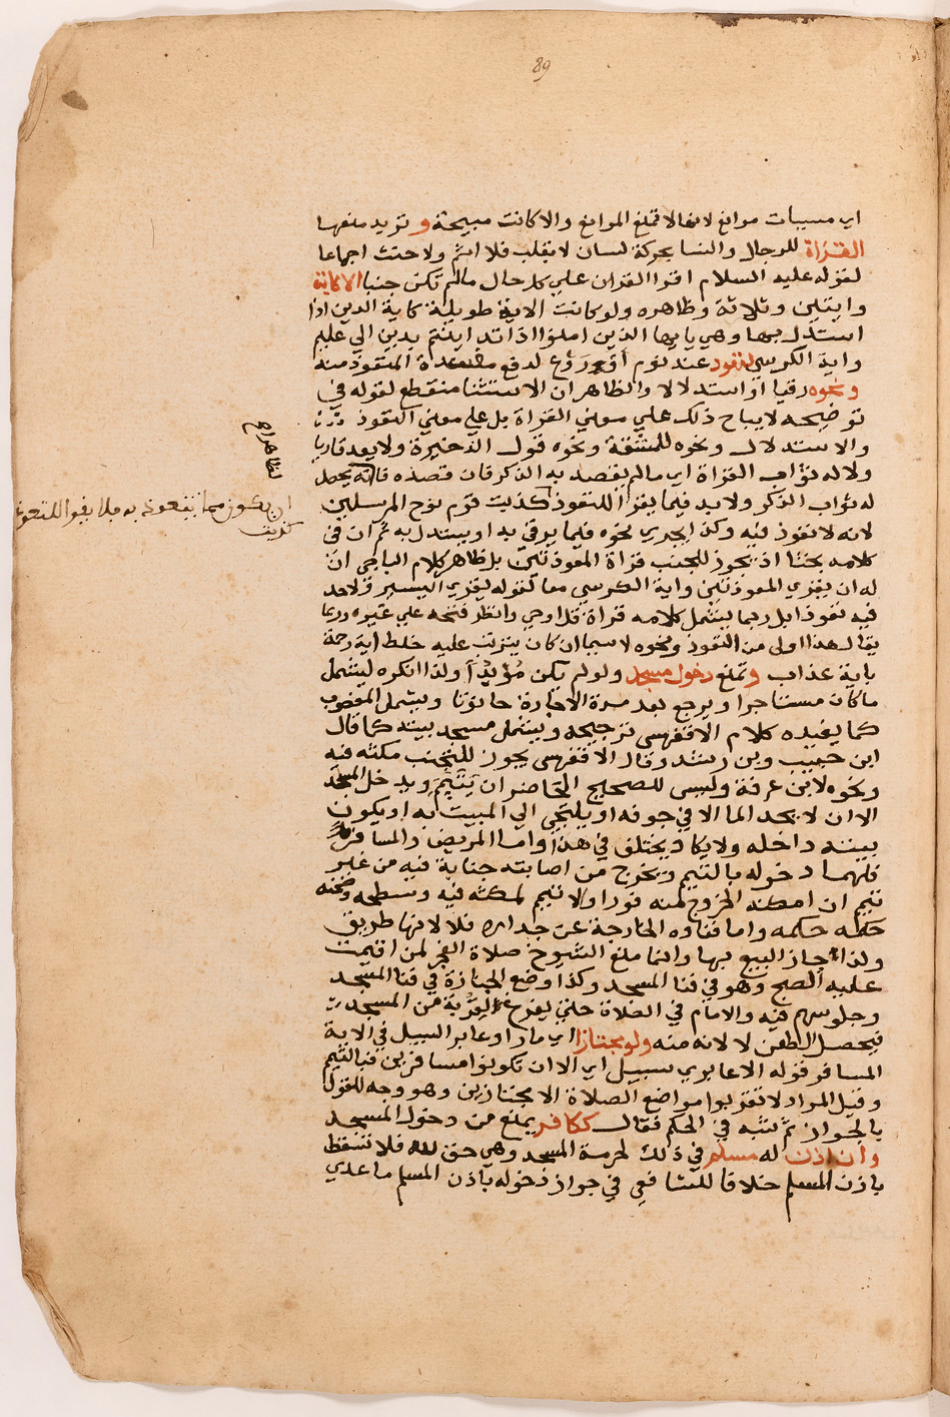 89
اي مسببات موانع لانها لا تمنع الموانع والا كانت مبيحة وتزيد منعها
القراة للرجال والنسا بحركة لسان لا بقلب فلا اثم ولا حنث اجماعا
لقوله عليه السلام اقروا القران علي كل حال مالم تكن جنبا الا كاية
وايتين وثلاثة وظاهره ولو كانت الاية طويلة كاية الدين اذا
استدل بها وهي يا يها الذين امنوا اذا تداينتم بدين الي عليم
واية الكرسي لتعوذ عند نوم او روع لدفع مفسدة المتعوذ منه
ونحوه رقيا او استدلالا والظاهر ان الاستثنا منقطع لقوله في
توضيحه لا يباح ذلك علي معني القراة بل علي معني التعوذ
والاستدلال ونحوه للمشقة ونحوه قول الذخيرة ولا يعد قاريا
ولا له ثواب القراة اي مالم يقصد به الذكر فان قصده فانه يحصل
له ثواب الذكر ولابد فيما يقرا للتعوذ كذبت قوم نوح المرسلين
لانه لا تعوذ فيه وكذا يجري نحوه فيما يرقي به او يستدل به ثم ان في
كلامه بحثا اذ يجوز للجنب قراة المعوذتين بل ظاهر كلام الباجي ان
له ان يقري المعوذتين واية الكرسي معا لقوله يقري اليسير ولا حد
فيه تعوذا بل ربما يشمل كلامه قراة قل اوحي وانظر فتحه علي غيره وربما
يقال هذا اولي من التعوذ ونحوه لا سيما ان كان يترتب عليه خلط اية رحمة
باية عذاب وتمنع دخول مسجد ولو لم يكن مؤبدا ولذا انكره ليشمل
ما كان مستاجرا ويرجع بعد مدة الاجارة حانوتا ويشمل المغصوب
كما يفيده كلام الاقفهسي ترجيحه ويشمل مسجد بيته كما قال
ابن حبيب وبن رشد وقال الاقفهسي يجوز للجنب مكثه فيه
ونحوه لابن عرفة وليس للصحيح الحاضر ان يتيمم ويدخل المسجد
الا ان لا يجد الما الا في جوفه او يلتجي الي المبيت به او يكون
بيته داخله ولا يكاد يختلف في هذا واما المريض والمسافر
فلهما دخوله بالتيمم ويخرج من اصابته جنابة فيه من غير
تيمم ان امكنه الخروج منه فورا والا تيمم لمكثه فيه وسطحه وصحنه
حكمه حكمه واما فناوه الخارجة عن جداره فلا لانها طريق
ولذا جاز البيع بها وانما منع الشيوخ صلاة الفجر لمن اقيمت
عليه الصبح وهو في فنا المسجد وكذا وضع الجنازة في فنا المسجد
وجلوسهم فيه والامام في الصلاة حتي يفرغ لقربه من المسجد
فيحصل الطعن لا لانه منه ولو مجتازا اي مارا وعابر السبيل في الاية
المسافر قوله الا عابري سبيل اي الا ان تكونوا مسافرين فبالتيمم
وقيل المراد لا تقربوا مواضع الصلاة الا مجتازين وهو وجه للقول
بالجواز ثم شبه في الحكم فقال ككافر يمنع من دخول المسجد
وان اذن له مسلم في ذلك لحرمة المسجد وهي حق لله فلا تسقط
باذن المسلم خلافا للشافعي في جواز دخوله باذن المسلم ما عدي
ان يكون مما يتعوذ به فلا يقرا للتعوذ
كذبت